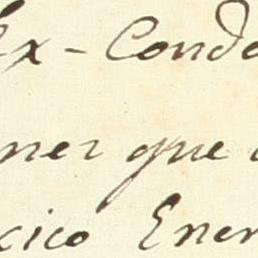 Ex-Conde
ner que
xico Ener